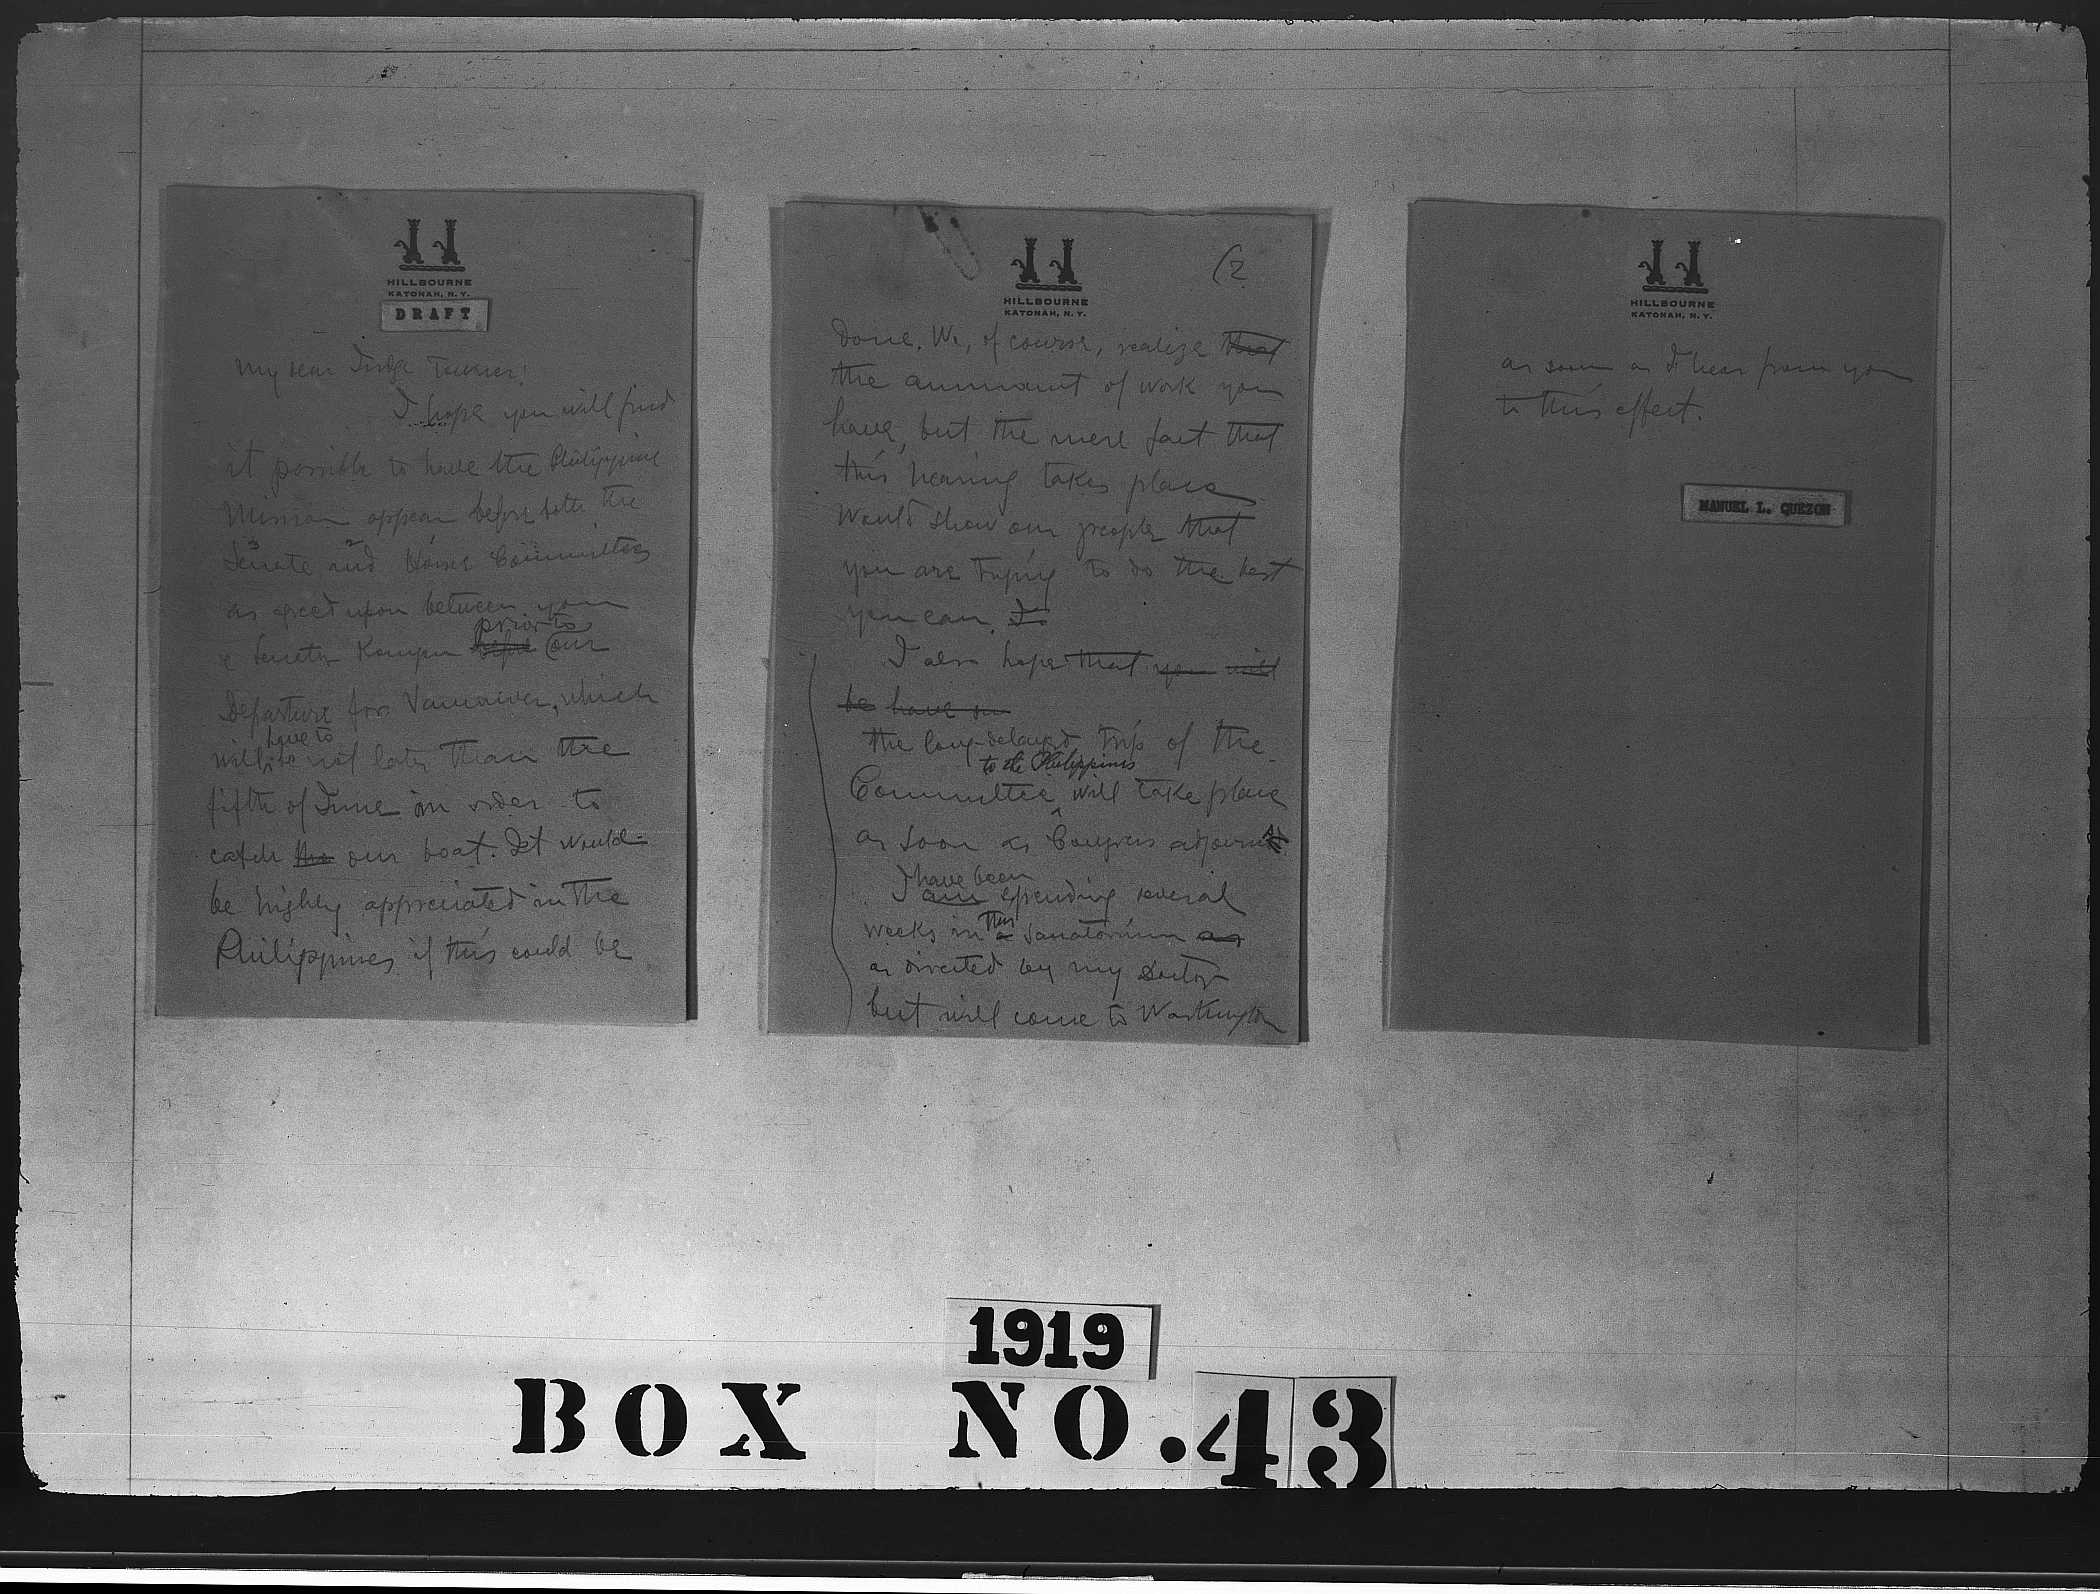 HILLBOURNE
KATONAH, N. Y.
DRAFT
My dear Judge Towner:
I hope you will find
it possible to have the Philippine
Mission appear before both the
Senate and House Committees
as agreed upon between you
& Senator before prior to our
Departure for Vancouver, which
will have to be not later than the
fifth of June in order to
catch the our boat. It would
be highly appreciated in the
Philippines if this could be
HILLBOURNE
KATONAH, N. Y.
(2
done. We, of course, realize that
the ammount of work you
have, but the mere fact that
this hearing takes place
would show our people that
you are trying to do the best
you can. I
I also hope that you will
be have our
the long-delayed trip of the
to the Philippines
Committee will take place
as soon as Congress adjourns
have been
I am spending several
weeks in a this sanatorium as
as directed by my Doctor
but will come to Washington
HILLBOURNE
KATONAH, N. Y.
as soon as I hear from you
to this effect.
MANUEL L. QUEZON
1919
BOX NO. 43